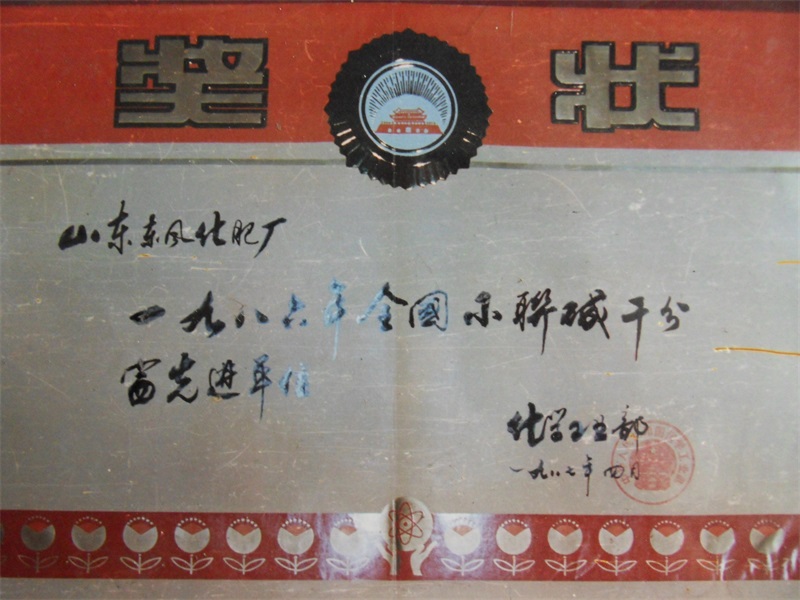 奖状
山东东风化肥厂
一九八六年全國小聯碱千分
先进单位
化学工业部
一九八七年四月